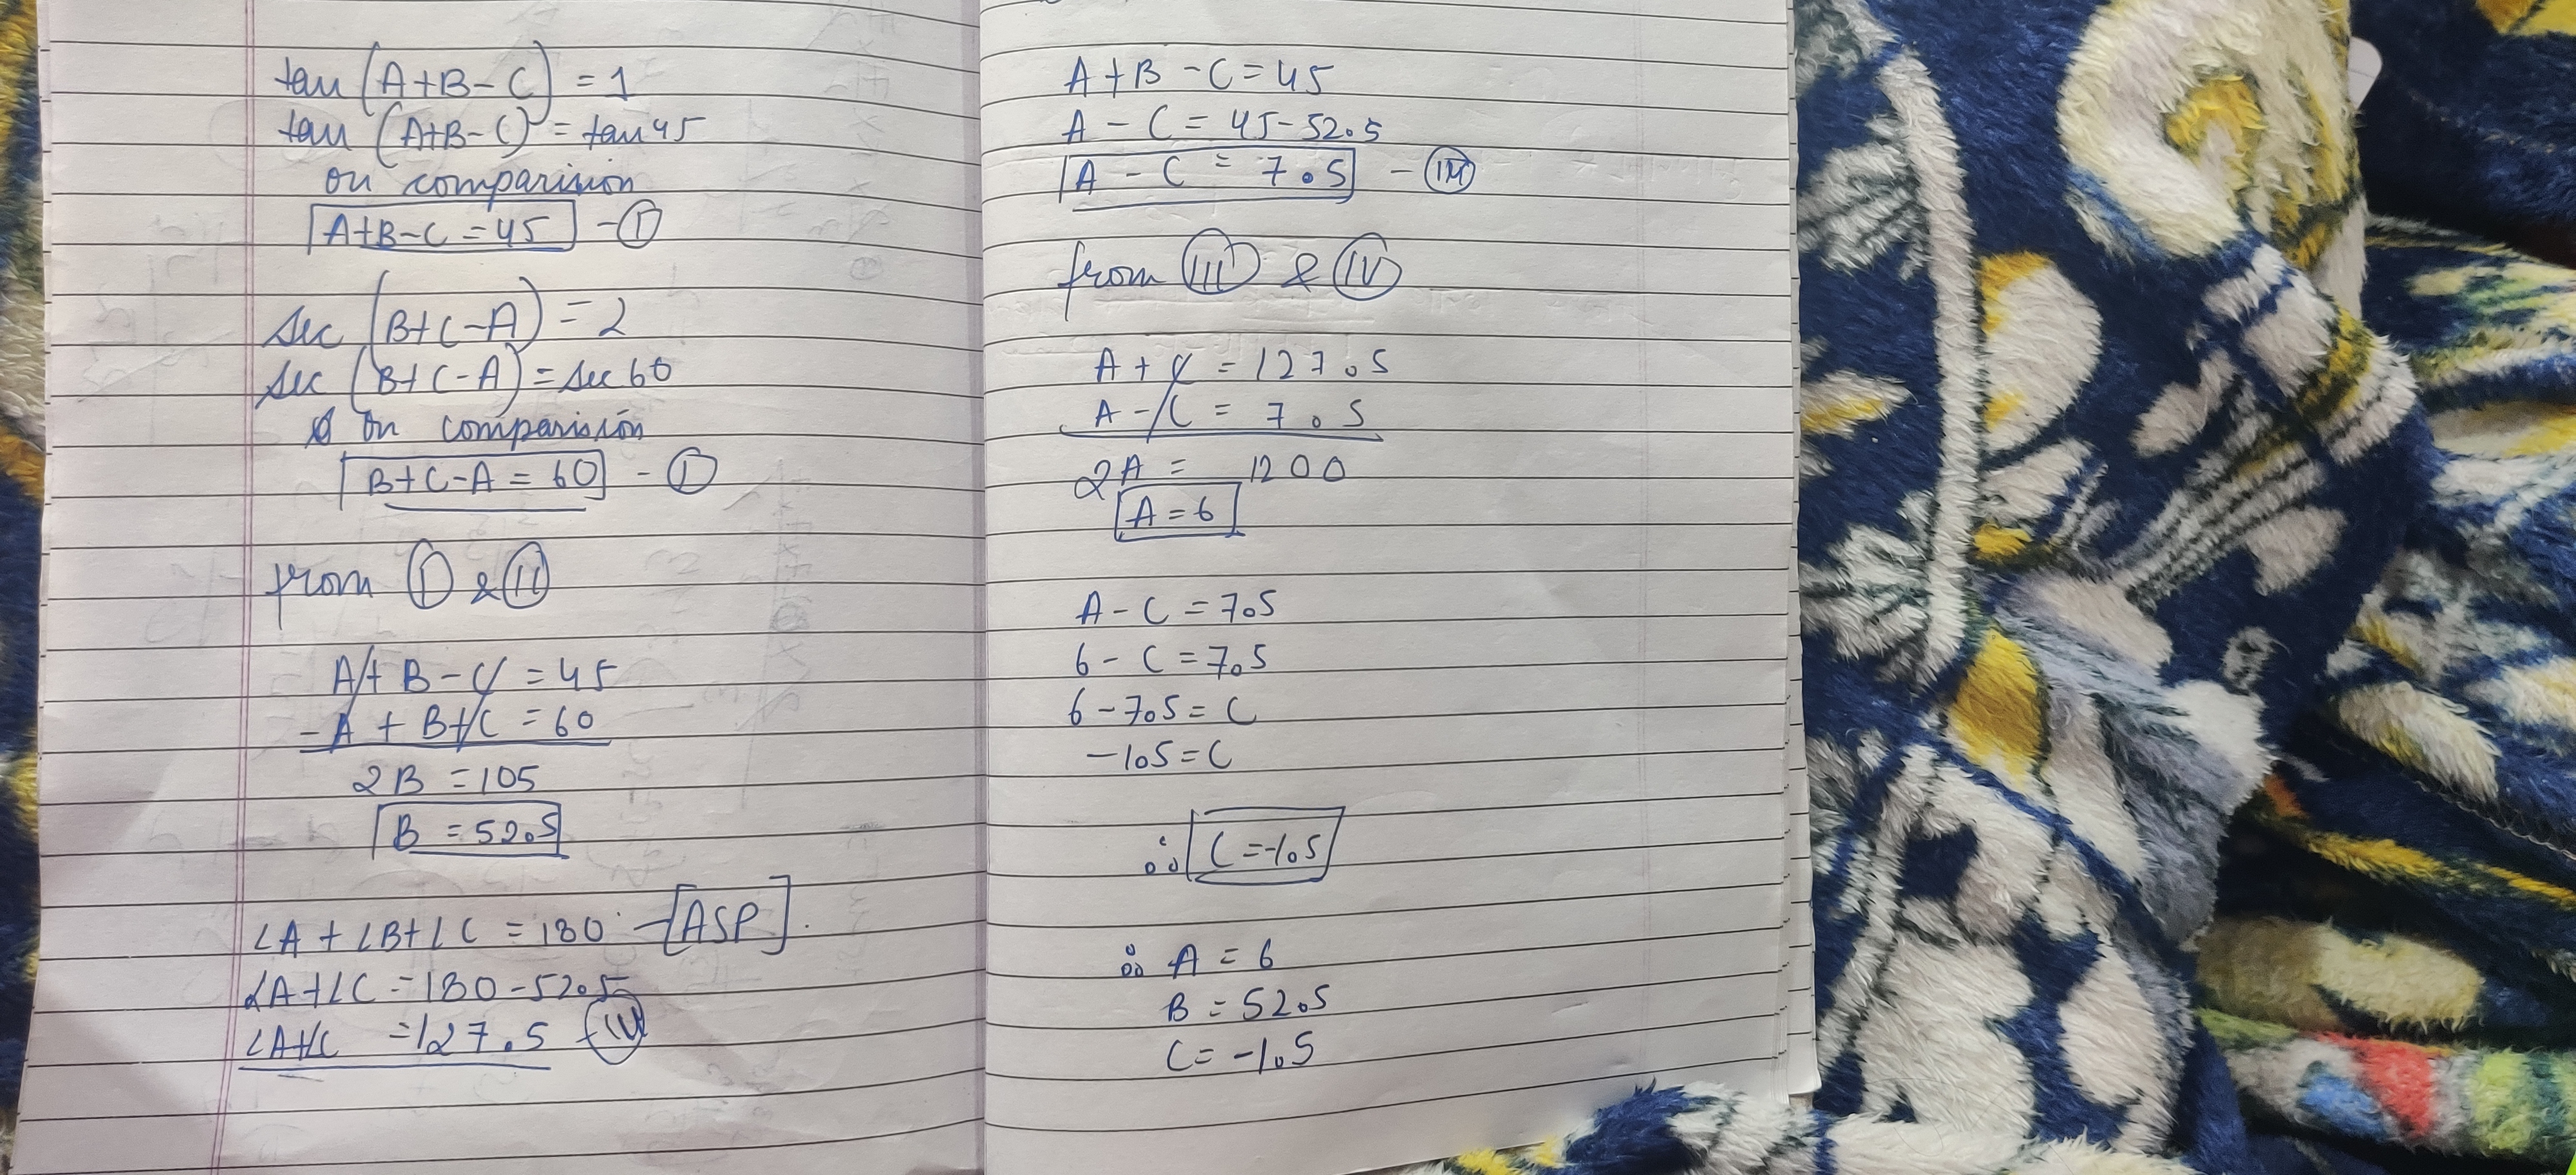 tan (A+B-C) = 1
tan (A+B-C) = tan 45
on comparision
A+B-C = 45 - I
sec (B+C-A) = 2
sec (B+C-A) = sec 60
On comparision
B+C-A = 60 - I
from I & II
A + B - C = 45
-A + B + C = 60
2B = 105
B = 52.5
∠A + ∠B + ∠C = 180 - [ASP].
∠A + ∠C = 180 - 52.5
∠A + ∠C = 127.5 - IV
A + B - C = 45
A - C = 45 - 52.5
A - C = 7.5 -
from III & IV
A + C = 127.5
A - C = 7.5
2A = 1200
A = 6
A - C = 7.5
6 - C = 7.5
6 - 7.5 = C
-1.5 = C
∴ C = -1.5
∴ A = 6
B = 52.5
C = -1.5